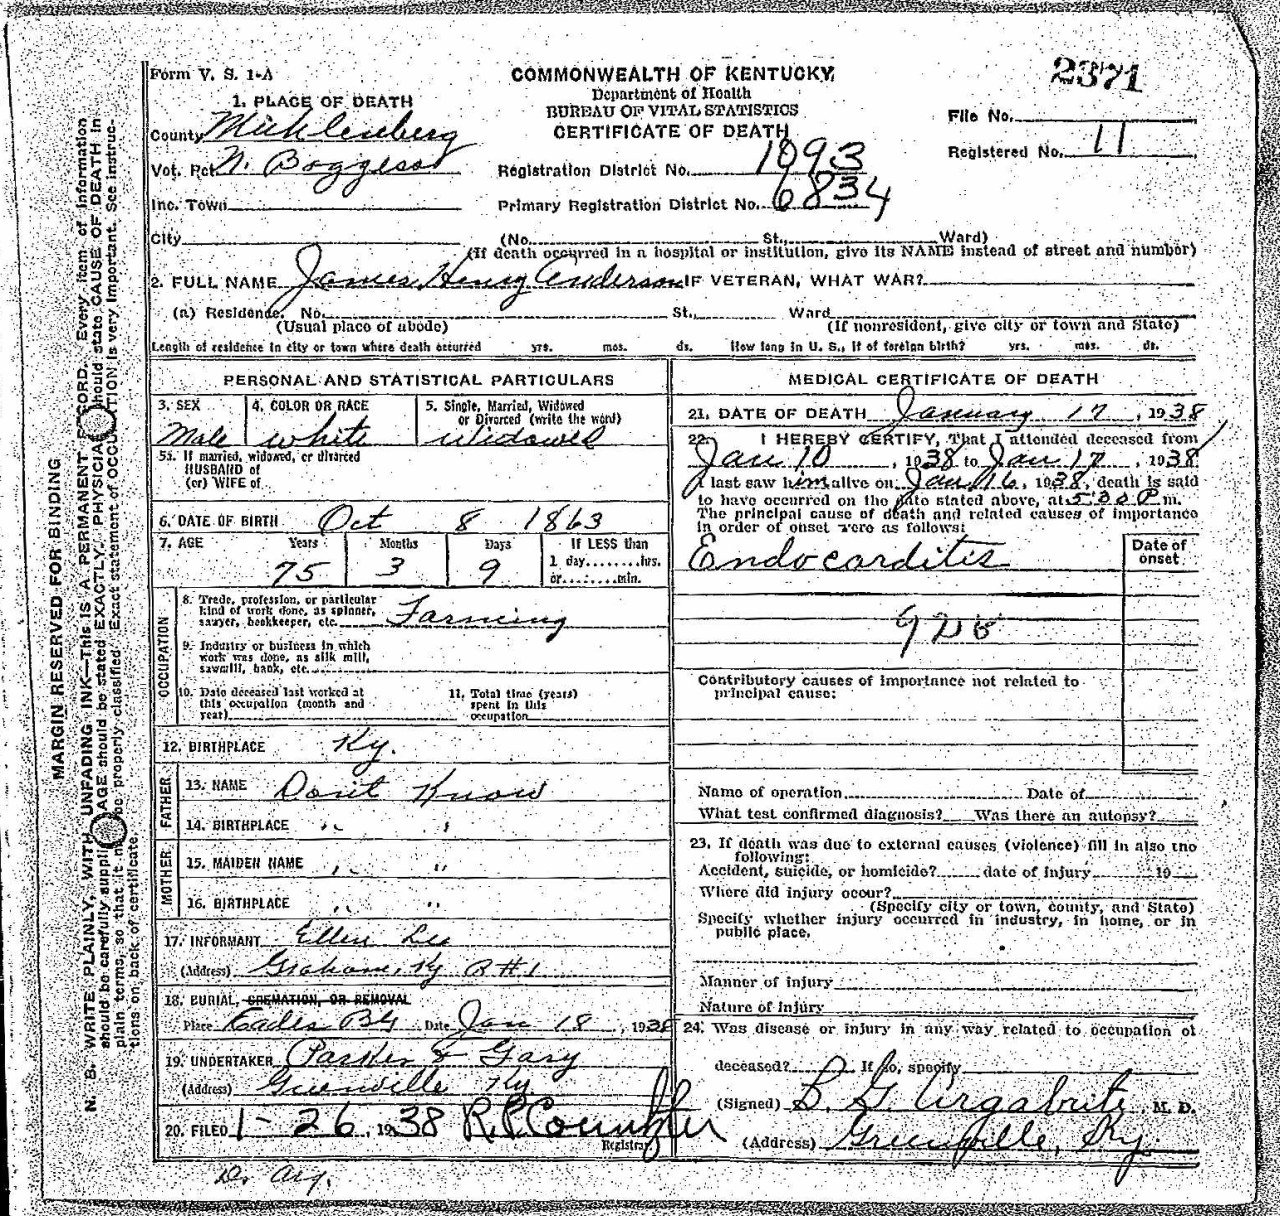 2371
Form V. S. 1-A
COMMONWEALTH OF KENTUCKY
Department of Health
BUREAU OF VITAL STATISTICS
CERTIFICATE OF DEATH
File No.
Registered No. 11
1. PLACE OF DEATH
County Muhlenberg
Vot. Pct. N. Boggess
Inc. Town
City
Registration District No. 1093
Primary Registration District No. 6834
(No. St., Ward)
(If death occurred in a hospital or institution, give its NAME instead of street and number)
2. FULL NAME James Henry Anderson IF VETERAN, WHAT WAR?
(a) Residence. No. St., Ward
(Usual place of abode) (If nonresident, give city or town and State)
Length of residence in city or town where death occurred yrs. mos. ds. How long in U. S., if of foreign birth? yrs. mos. ds.
PERSONAL AND STATISTICAL PARTICULARS
3. SEX 4. COLOR OR RACE 5. Single, Married, Widowed
or Divorced (write the word)
Male white Widowed
5a. If married, widowed, or divorced
HUSBAND of
(or) WIFE of
6. DATE OF BIRTH Oct 8 1863
7. AGE Years Months Days If LESS than
1 day........hrs.
75 3 9 or........min.
OCCUPATION
8. Trade, profession, or particular
kind of work done, as spinner,
sawyer, bookkeeper, etc. Farming
9. Industry or business in which
work was done, as silk mill,
sawmill, bank, etc.
10. Date deceased last worked at
this occupation (month and
year)
11. Total time (years)
spent in this
occupation
12. BIRTHPLACE Ky.
FATHER
13. NAME Dont Know
14. BIRTHPLACE " "
MOTHER
15. MAIDEN NAME " "
16. BIRTHPLACE " "
17. INFORMANT Ellen Lee
(Address) Graham, Ky R#1
18. BURIAL, CREMATION, OR REMOVAL
Place Eades BG Date Jan 18, 1938
19. UNDERTAKER Parker & Gary
(Address) Greenville Ky
20. FILED 1-26, 1938
Registrar
MEDICAL CERTIFICATE OF DEATH
21. DATE OF DEATH January 17, 1938
22. I HEREBY CERTIFY, That I attended deceased from
Jan 10, 1938 to Jan 17, 1938
I last saw him alive on Jan 16, 1938, death is said
to have occurred on the date stated above, at 5:30 P m.
The principal cause of death and related causes of importance
in order of onset were as follows:
Date of
onset
Endocarditis
Contributory causes of importance not related to
principal cause:
Name of operation Date of
What test confirmed diagnosis? Was there an autopsy?
23. If death was due to external causes (violence) fill in also the
following:
Accident, suicide, or homicide? date of injury 19
Where did injury occur?
(Specify city or town, county, and State)
Specify whether injury occurred in industry, in home, or in
public place.
Manner of injury
Nature of injury
24. Was disease or injury in any way related to occupation of
deceased? If so, specify
(Signed) B. G. Argabrite M. D.
(Address) Greenville, Ky.
MARGIN RESERVED FOR BINDING
N. B. WRITE PLAINLY, WITH UNFADING INK—THIS IS A PERMANENT RECORD. Every item of information
should be carefully supplied. AGE should be stated EXACTLY. PHYSICIANS should state CAUSE OF DEATH in
plain terms, so that it may be properly classified. Exact statement of OCCUPATION is very important. See instruc-
tions on back of certificate.